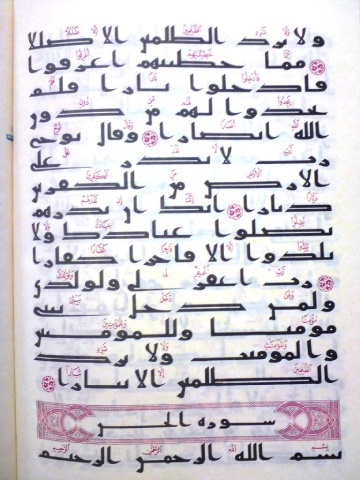 ولا تزد الظلمين الا ضللا
مما خطيتهم اغرقوا
فادخلوا نارا فلم
يجدوا لهم من دون
الله انصارا وقال نوح
رب لا تذر على
الارض من الكفرين
ديارا انك ان تذرهم
يضلوا عبادك ولا
يلدوا الا فاجرا كفارا
رب اغفر لي ولولدي
ولمن دخل بيتي
مومنا وللمومنين
والمومنت ولا تزد
الظلمين الا تبارا
سورة الجن
بسم الله الرحمن الرحيم